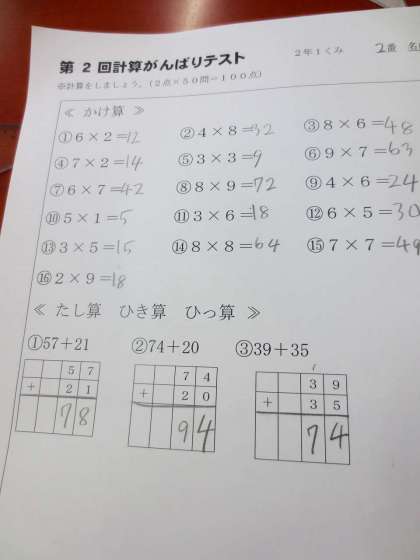 第2回計算がんばりテスト 2年1くみ 2番
※計算をしましょう。(2点×50問=100点)
≪ かけ算 ≫
①6×2=12 ②4×8=32 ③8×6=48
④7×2=14 ⑤3×3=9 ⑥9×7=63
⑦6×7=42 ⑧8×9=72 ⑨4×6=24
⑩5×1=5 ⑪3×6=18 ⑫6×5=30
⑬3×5=15 ⑭8×8=64 ⑮7×7=49
⑯2×9=18
≪ たし算 ひき算 ひっ算 ≫
①57+21 ②74+20 ③39+35
1
5 7 7 4 3 9
+ 2 1 + 2 0 + 3 5
7 8 9 4 7 4